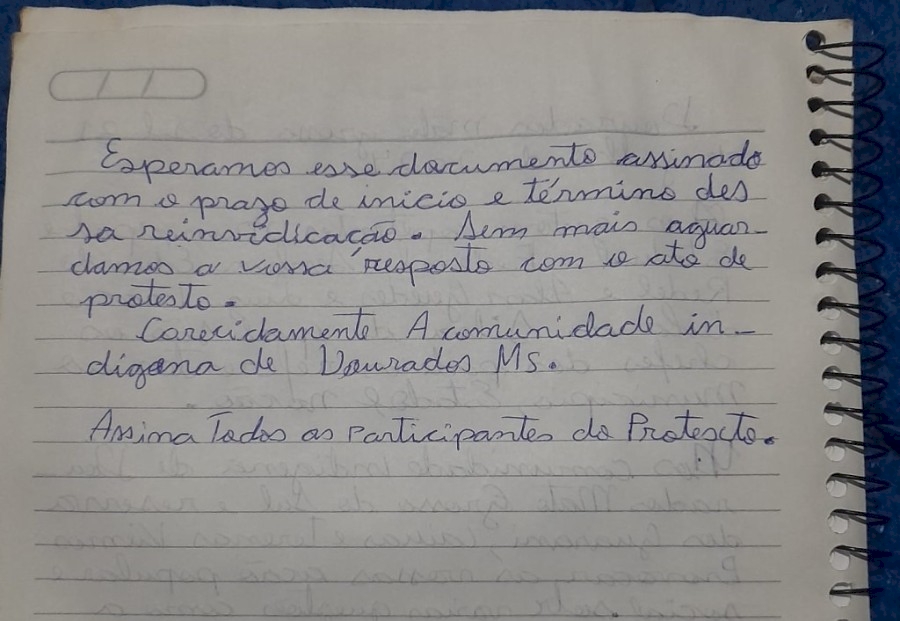 Esperamos esse documento assinado
com o prazo de inicio e término des
sa reinvidicação. Sem mais aguar-
damos a vossa resposto com o ato de
protesto.
Carecidamente A comunidade in-
digena de Dourados Ms.
Assina Todos os Participantes do Protescto.